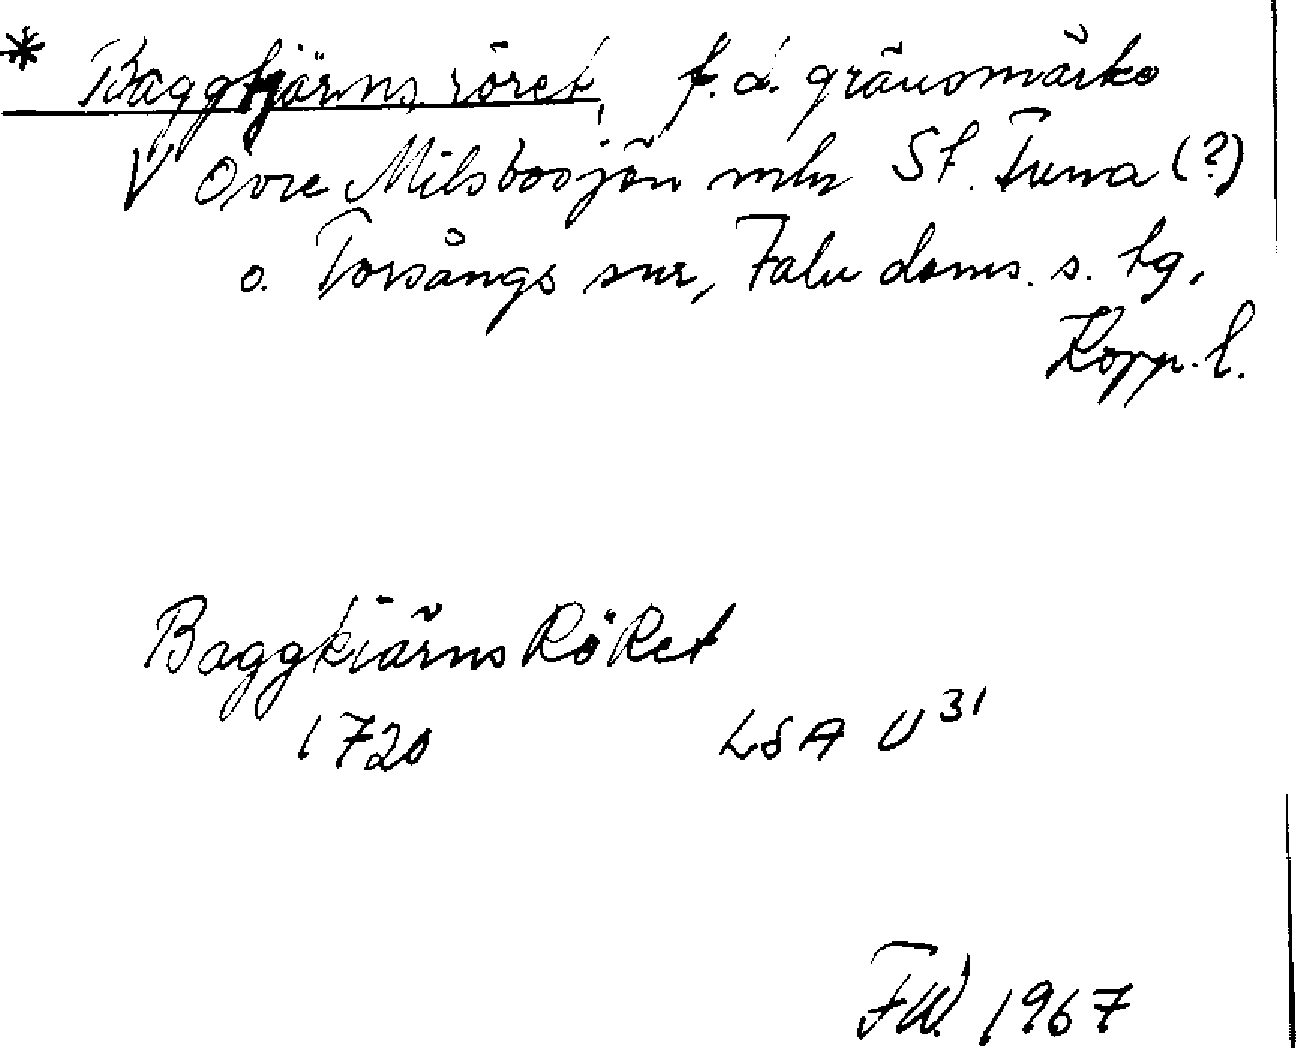 * Baggtjärnsröret, f.d. gränsmärke
V Övre Milsbosjön mln St. Tuna (?)
o. Torsångs snr, Falu doms. s. tg,
Kopp. l.
Baggkiärns Röret
1720 LSA U 31
FW. 1967